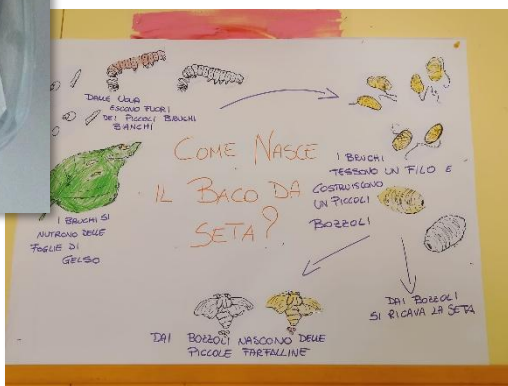 COME NASCE
IL BACO DA
SETA?
DALLE UOVA
ESCONO FUORI
DEI PICCOLI BRUCHI
BIANCHI
I BRUCHI SI
NUTRONO DELLE
FOGLIE DI
GELSO
I BRUCHI
TESSONO UN FILO E
COSTRUISCONO
UN PICCOLI
BOZZOLI
DAI BOZZOLI
SI RICAVA LA SETA
DAI BOZZOLI NASCONO DELLE
PICCOLE FARFALLINE